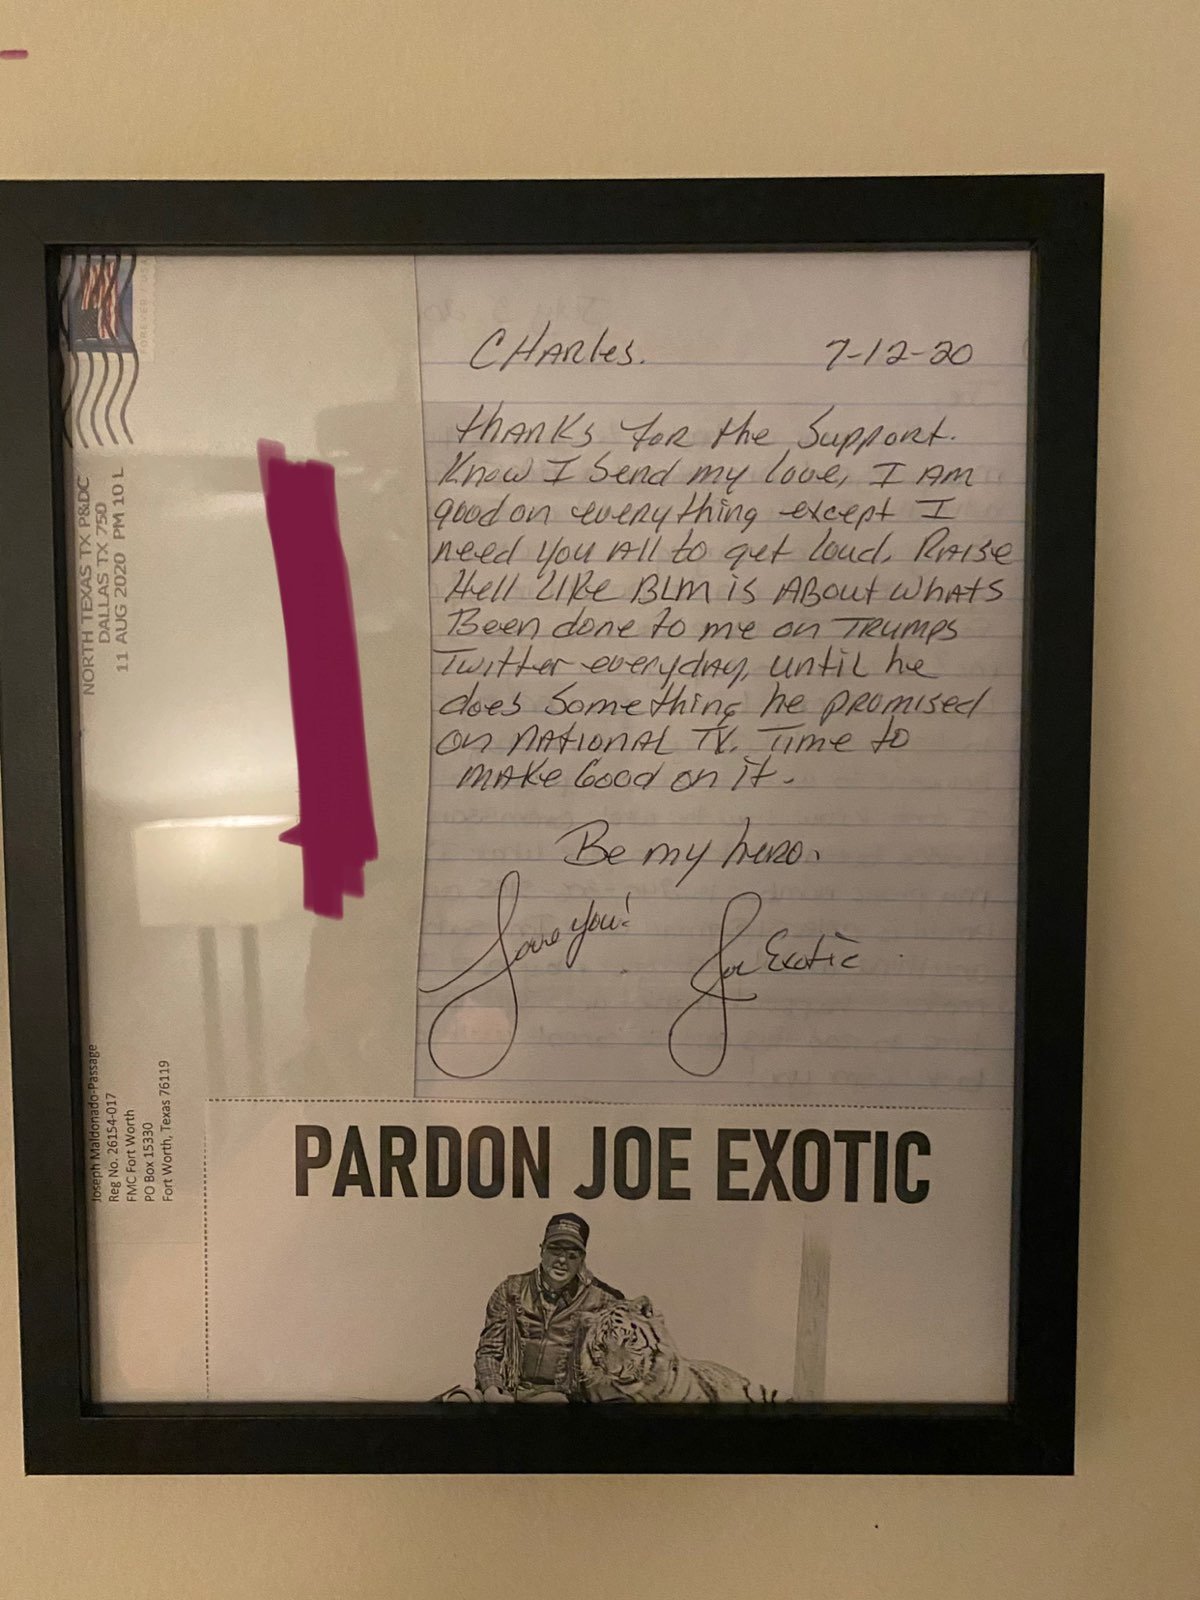 FOREVER / USA
NORTH TEXAS TX P&DC
DALLAS TX 750
11 AUG 2020 PM 10 L
CHARles. 7-12-20
THANKS for the Support.
Know I Send my love, I AM
good on everything except I
need you All to get loud. RAise
Hell Like BLM is About whats
Been done to me on TRumps
Twitter everyday, until he
does Something he promised
on NATIONAL TV. Time to
MAKe Good on it.
Be my hero.
Love you! Joe Exotic
Joseph Maldonado-Passage
Reg No. 26154-017
FMC Fort Worth
PO Box 15330
Fort Worth, Texas 76119
PARDON JOE EXOTIC